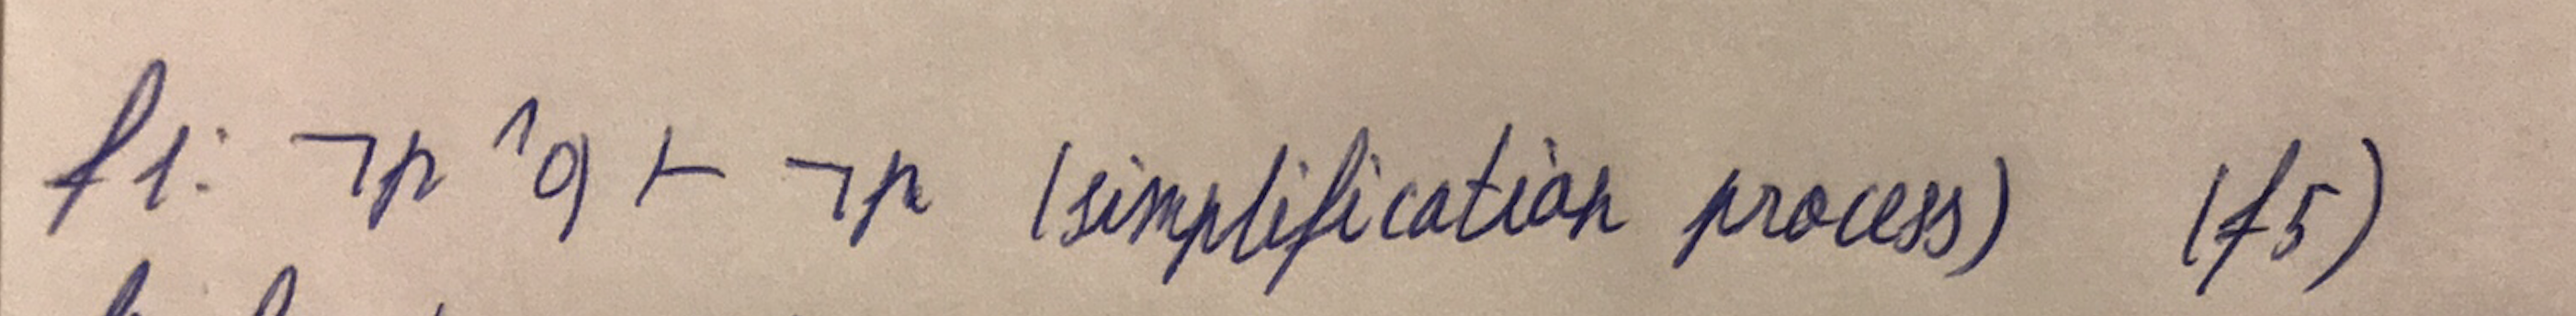 f1: ¬p ^ q ⊢ ¬p (simplification process) (f5)